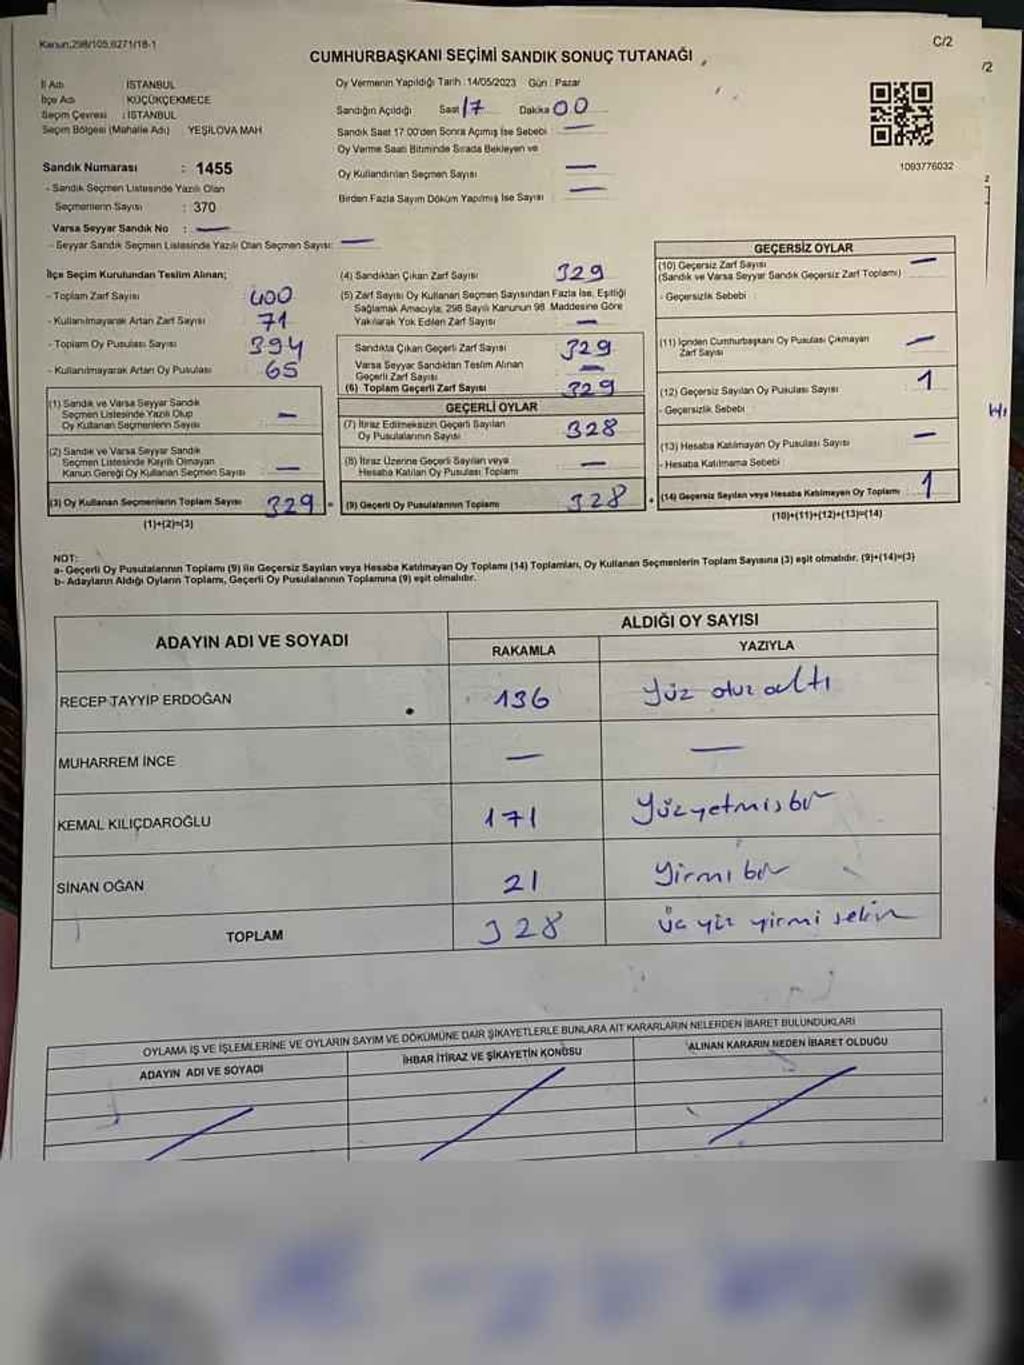 Kanun;298/105,6271/18-1
C/2
/2
CUMHURBAŞKANI SEÇİMİ SANDIK SONUÇ TUTANAĞI
İl Adı : İSTANBUL
İlçe Adı : KÜÇÜKÇEKMECE
Seçim Çevresi : İSTANBUL
Seçim Bölgesi (Mahalle Adı) YEŞİLOVA MAH
Sandık Numarası : 1455
- Sandık Seçmen Listesinde Yazılı Olan
Seçmenlerin Sayısı : 370
Varsa Seyyar Sandık No : —
- Seyyar Sandık Seçmen Listesinde Yazılı Olan Seçmen Sayısı: —
Oy Vermenin Yapıldığı Tarih :14/05/2023 Gün : Pazar
Sandığın Açıldığı Saat 17 Dakika 00
Sandık Saat 17.00'den Sonra Açımış İse Sebebi : —
Oy Verme Saati Bitiminde Sırada Bekleyen ve
Oy Kullandırılan Seçmen Sayısı : —
Birden Fazla Sayım Döküm Yapılmış İse Sayısı : —
1093776032
2
İlçe Seçim Kurulundan Teslim Alınan;
- Toplam Zarf Sayısı : 400
- Kullanılmayarak Artan Zarf Sayısı : 71
- Toplam Oy Pusulası Sayısı : 394
- Kullanılmayarak Artan Oy Pusulası : 65
(1) Sandık ve Varsa Seyyar Sandık
Seçmen Listesinde Yazılı Olup
Oy Kullanan Seçmenlerin Sayısı : —
(2) Sandık ve Varsa Seyyar Sandık
Seçmen Listesinde Kayıtlı Olmayan
Kanun Gereği Oy Kullanan Seçmen Sayısı : —
(3) Oy Kullanan Seçmenlerin Toplam Sayısı : 329
(1)+(2)=(3)
(4) Sandıktan Çıkan Zarf Sayısı : 329
(5) Zarf Sayısı Oy Kullanan Seçmen Sayısından Fazla İse, Eşitliği
Sağlamak Amacıyla; 298 Sayılı Kanunun 98. Maddesine Göre
Yakılarak Yok Edilen Zarf Sayısı : —
Sandıkta Çıkan Geçerli Zarf Sayısı : 329
Varsa Seyyar Sandıktan Teslim Alınan
Geçerli Zarf Sayısı : —
(6) Toplam Geçerli Zarf Sayısı : 329
GEÇERLİ OYLAR
(7) İtiraz Edilmeksizin Geçerli Sayılan
Oy Pusulalarının Sayısı : 328
(8) İtiraz Üzerine Geçerli Sayılan veya
Hesaba Katılan Oy Pusulası Toplamı : —
(9) Geçerli Oy Pusulalarının Toplamı : 328
GEÇERSİZ OYLAR
(10) Geçersiz Zarf Sayısı : —
(Sandık ve Varsa Seyyar Sandık Geçersiz Zarf Toplamı)
- Geçersizlik Sebebi :
(11) İçinden Cumhurbaşkanı Oy Pusulası Çıkmayan
Zarf Sayısı : —
(12) Geçersiz Sayılan Oy Pusulası Sayısı : 1
- Geçersizlik Sebebi :
(13) Hesaba Katılmayan Oy Pusulası Sayısı : —
- Hesaba Katılmama Sebebi :
(14) Geçersiz Sayılan veya Hesaba Katılmayan Oy Toplamı : 1
(10)+(11)+(12)+(13)=(14)
NOT:
a- Geçerli Oy Pusulalarının Toplamı (9) ile Geçersiz Sayılan veya Hesaba Katılmayan Oy Toplamı (14) Toplamları, Oy Kullanan Seçmenlerin Toplam Sayısına (3) eşit olmalıdır. (9)+(14)=(3)
b- Adayların Aldığı Oyların Toplamı, Geçerli Oy Pusulalarının Toplamına (9) eşit olmalıdır.
ADAYIN ADI VE SOYADI
ALDIĞI OY SAYISI
RAKAMLA YAZIYLA
RECEP TAYYİP ERDOĞAN 136 Yüz otuz altı
MUHARREM İNCE — —
KEMAL KILIÇDAROĞLU 171 Yüzyetmişbir
SİNAN OĞAN 21 Yirmi bir
TOPLAM 328 üç yüz yirmi sekiz
OYLAMA İŞ VE İŞLEMLERİNE VE OYLARIN SAYIM VE DÖKÜMÜNE DAİR ŞİKAYETLERLE BUNLARA AİT KARARLARIN NELERDEN İBARET BULUNDUKLARI
ADAYIN ADI VE SOYADI
İHBAR İTİRAZ VE ŞİKAYETİN KONUSU
ALINAN KARARIN NEDEN İBARET OLDUĞU